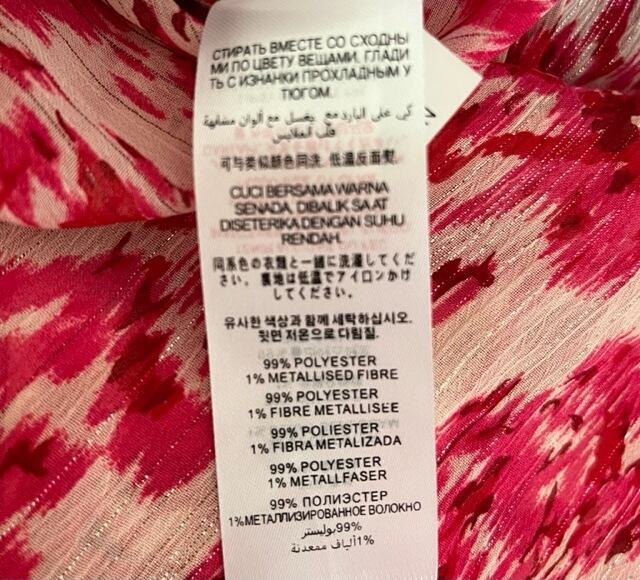 СТИРАТЬ ВМЕСТЕ СО СХОДНЫ
МИ ПО ЦВЕТУ ВЕЩАМИ. ГЛАДИ
ТЬ С ИЗНАНКИ ПРОХЛАДНЫМ У
ТЮГОМ.
كي على البارد مع يغسل مع ألوان مشابهة
قلب الملابس
可与类似颜色同洗. 低温反面熨.
CUCI BERSAMA WARNA
SENADA, DIBALIK SAAT
DISETERIKA DENGAN SUHU
RENDAH.
同系色の衣類と一緒に洗濯してくだ
さい。裏地は低温でアイロンかけ
してください。
유사한 색상과 함께 세탁하십시오.
뒷면 저온으로 다림질.
99% POLYESTER
1% METALLISED FIBRE
99% POLYESTER
1% FIBRE METALLISÉE
99% POLIESTER
1% FIBRA METALIZADA
99% POLYESTER
1% METALLFASER
99% ПОЛИЭСТЕР
1%МЕТАЛЛИЗИРОВАННОЕ ВОЛОКНО
99%بوليستر
1%ألياف ممعدنة